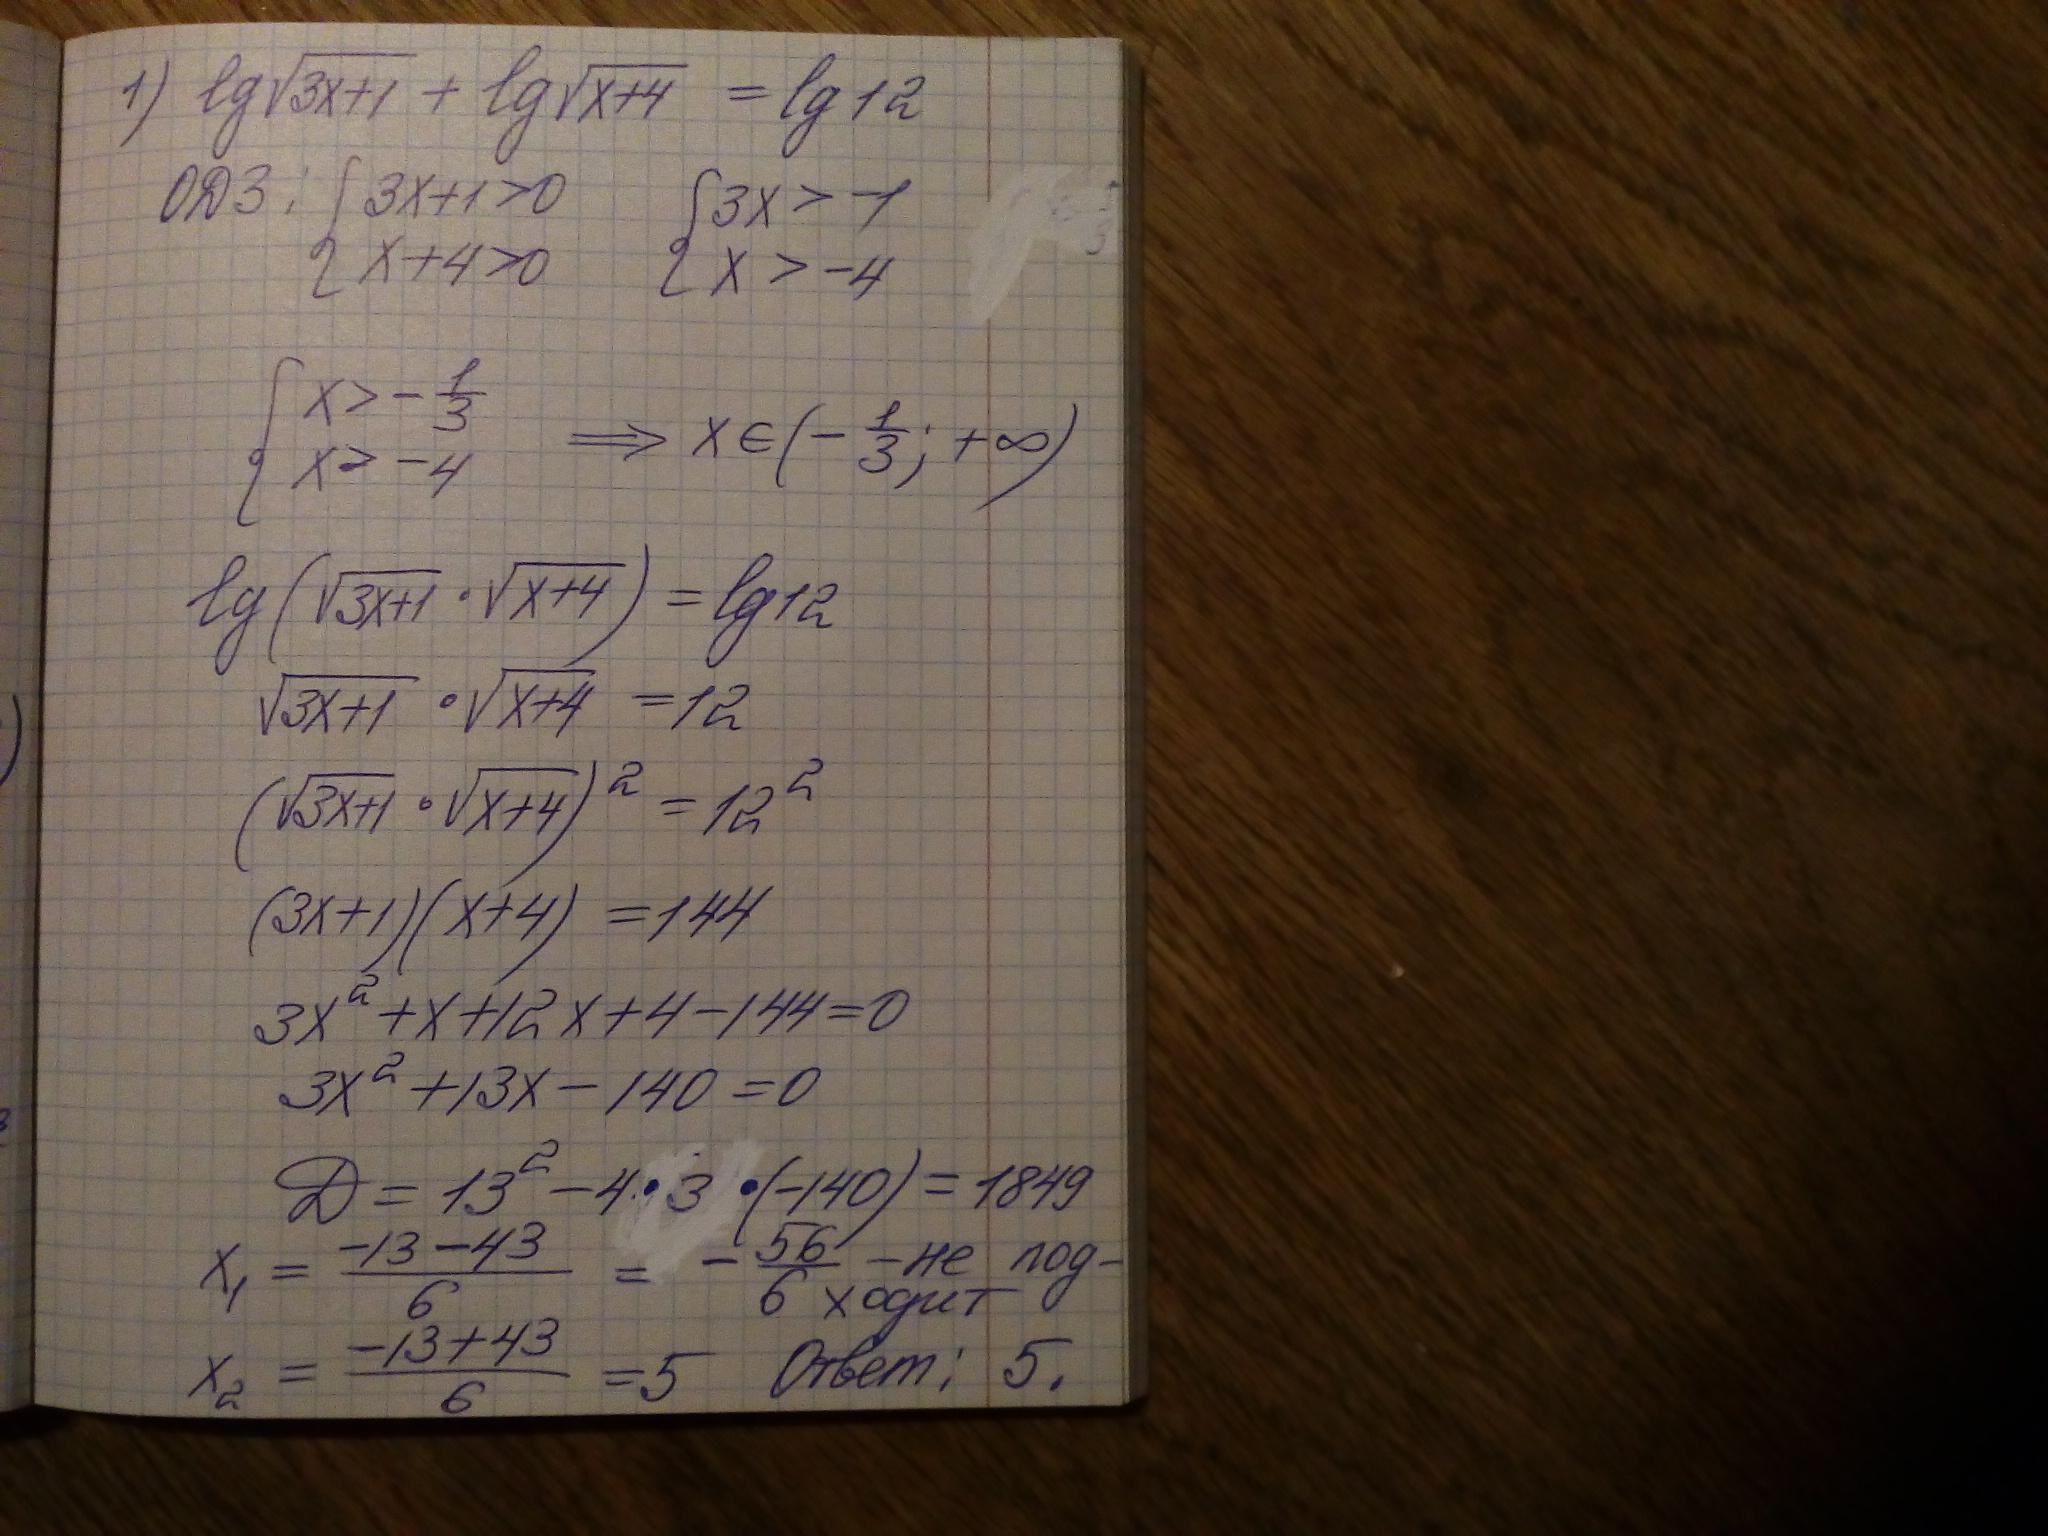 1) lg√(3x+1) + lg√(x+4) = lg12
ОДЗ: {3x+1>0 {3x>-1
{x+4>0 {x>-4
{x>-1/3
{x>-4 ⟹ x∈(-1/3; +∞)
lg(√(3x+1)·√(x+4)) = lg12
√(3x+1)·√(x+4) = 12
(√(3x+1)·√(x+4))² = 12²
(3x+1)(x+4) = 144
3x²+x+12x+4-144=0
3x²+13x-140=0
D = 13²-4·3·(-140) = 1849
x₁ = (-13-43)/6 = -56/6 - не под-
ходит
x₂ = (-13+43)/6 = 5 Ответ: 5.